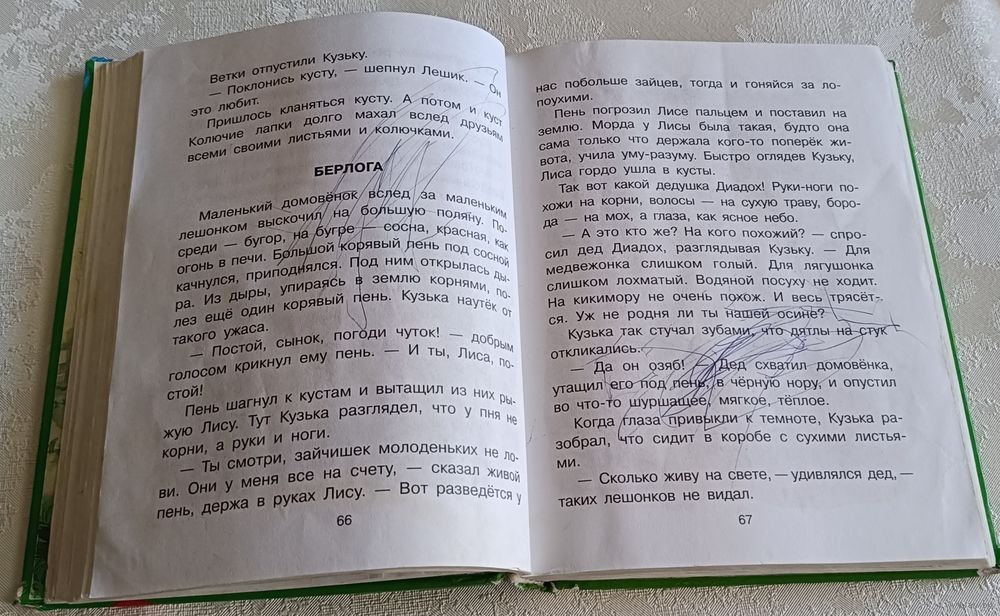 Ветки отпустили Кузьку.
— Поклонись кусту, — шепнул Лешик. — Он
это любит.
Пришлось кланяться кусту. А потом и куст
Колючие лапки долго махал вслед друзьям
всеми своими листьями и колючками.
БЕРЛОГА
Маленький домовёнок вслед за маленьким
лешонком выскочил на большую поляну. По-
среди — бугор, на бугре — сосна, красная, как
огонь в печи. Большой корявый пень под сосной
качнулся, приподнялся. Под ним открылась ды-
ра. Из дыры, упираясь в землю корнями, по-
лез ещё один корявый пень. Кузька наутёк от
такого ужаса.
— Постой, сынок, погоди чуток! — добрым
голосом крикнул ему пень. — И ты, Лиса, по-
стой!
Пень шагнул к кустам и вытащил из них ры-
жую Лису. Тут Кузька разглядел, что у пня не
корни, а руки и ноги.
— Ты смотри, зайчишек молоденьких не ло-
ви. Они у меня все на счету, — сказал живой
пень, держа в руках Лису. — Вот разведётся у
66
нас побольше зайцев, тогда и гоняйся за ло-
поухими.
Пень погрозил Лисе пальцем и поставил на
землю. Морда у Лисы была такая, будто она
сама только что держала кого-то поперёк жи-
вота, учила уму-разуму. Быстро оглядев Кузьку,
Лиса гордо ушла в кусты.
Так вот какой дедушка Диадох! Руки-ноги по-
хожи на корни, волосы — на сухую траву, боро-
да — на мох, а глаза, как ясное небо.
— А это кто же? На кого похожий? — спро-
сил дед Диадох, разглядывая Кузьку. — Для
медвежонка слишком голый. Для лягушонка
слишком лохматый. Водяной посуху не ходит.
На кикимору не очень похож. И весь трясёт-
ся. Уж не родня ли ты нашей осине?
Кузька так стучал зубами, что дятлы на стук
откликались.
— Да он озяб! — Дед схватил домовёнка,
утащил его под пень, в чёрную нору, и опустил
во что-то шуршащее, мягкое, тёплое.
Когда глаза привыкли к темноте, Кузька ра-
зобрал, что сидит в коробе с сухими листья-
ми.
— Сколько живу на свете, — удивлялся дед, —
таких лешонков не видал.
67